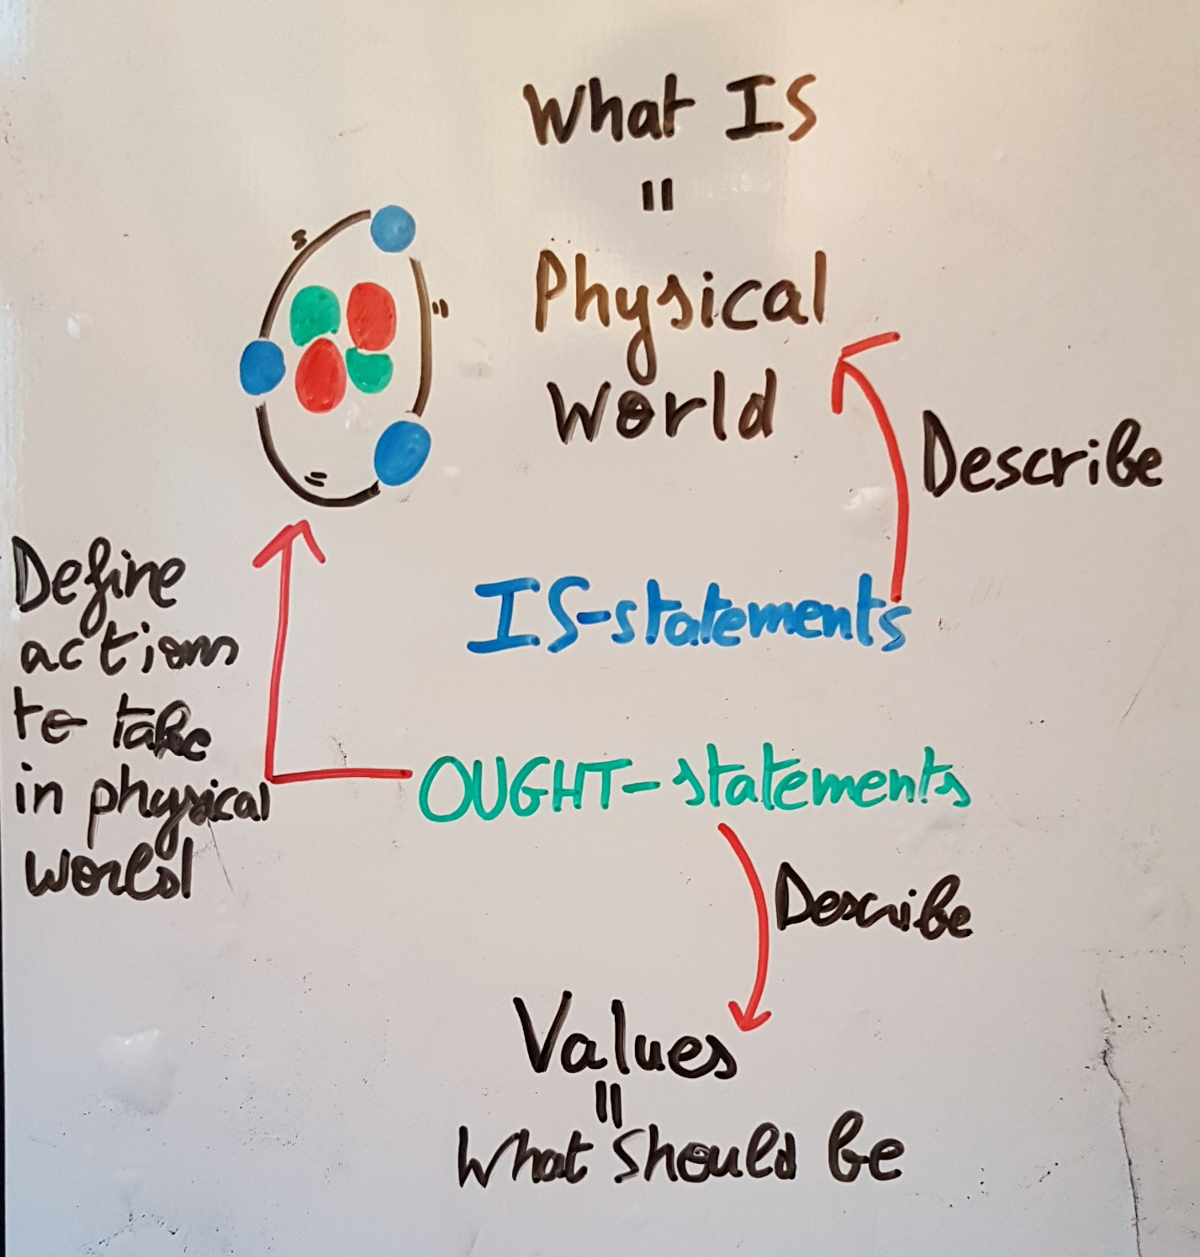 What IS
=
Physical
World
Describe
Define
actions
to take
in physical
world
IS-statements
OUGHT-statements
Describe
Values
=
What should be